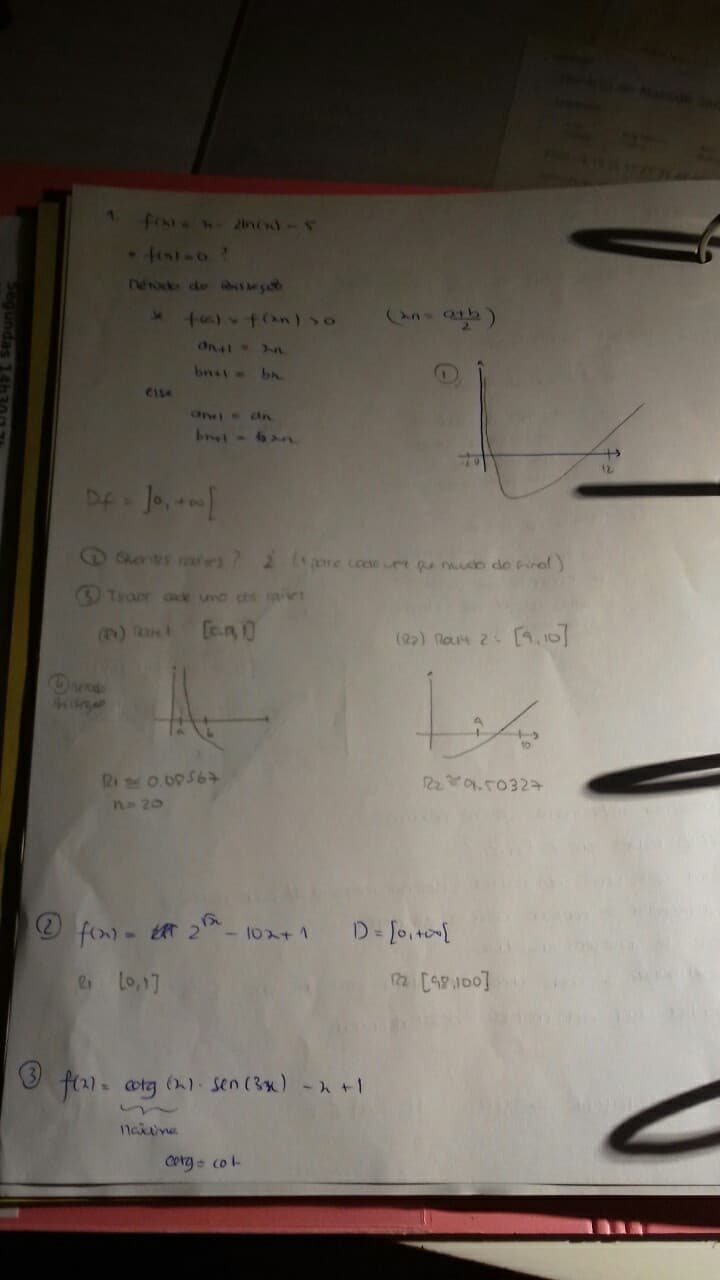 1. f(x) = x - 2ln(x) - 5
• f(x) = 0 ?
Método do Bissecção
se f(a) * f(xn) > 0 (xn = a+b/2)
an+1 = xn
bn+1 = bn
else
an+1 = an
bn+1 = xn
①
12
Df = ]0, +∞[
② Quantas raízes? 2 (1 para cada vez que muda de sinal)
③ cada uma das raízes
(R1) Raiz 1 1]
(R2) Raiz 2 - [9,10]
④ método
bissecção
a b
9
10
R1 ≃ 0.08567
n = 20
R2 ≃ 9.50327
② f(x) = 2^√x - 10x + 1 D = [0, +∞[
R1 [0,1]
R2 [98,100]
③ f(x) = cotg (x) . sen(3x) - x + 1
cotg = cot